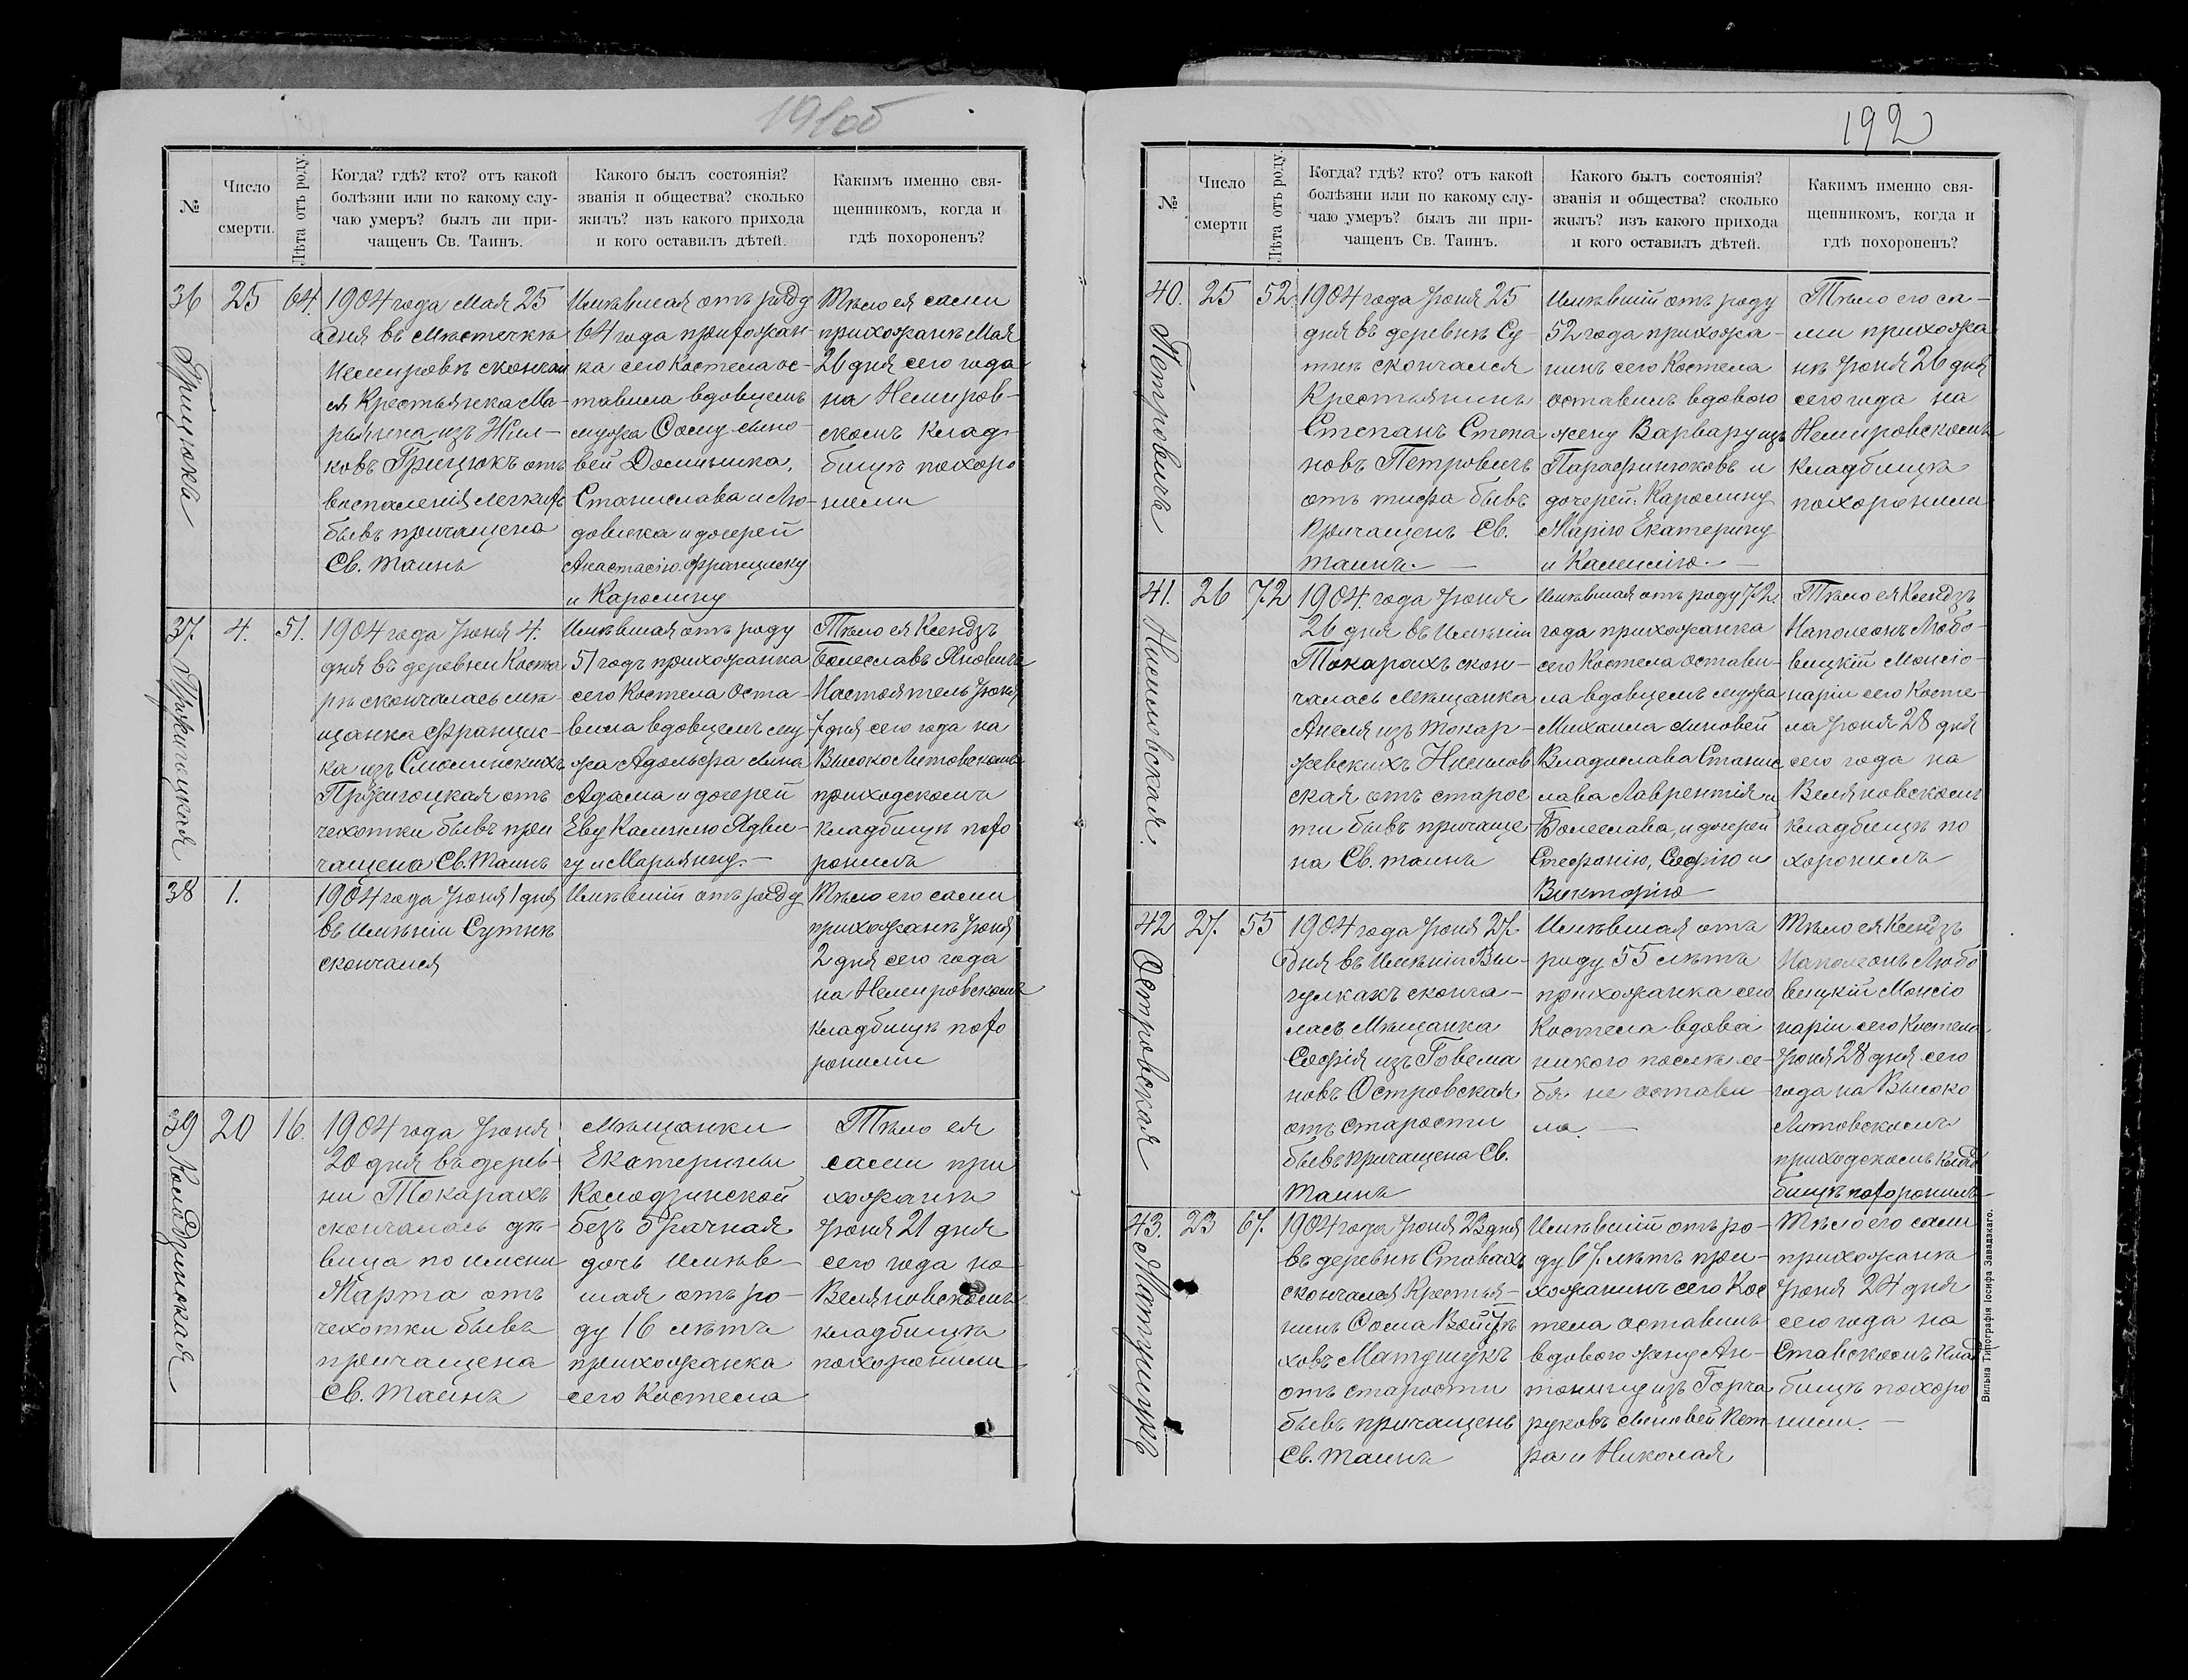 191об
№
Число
смерти.
Лѣта отъ роду.
Когда? гдѣ? кто? отъ какой
болѣзни или по какому слу-
чаю умеръ? былъ ли при-
чащенъ Св. Таинъ.
Какого былъ состоянія?
званія и общества? сколько
жилъ? изъ какого прихода
и кого оставилъ дѣтей.
Какимъ именно свя-
щенникомъ, когда и
гдѣ похороненъ?
36
Грицюка
25
64.
1904 года Мая 25
дня въ Мѣстечкѣ
Немировѣ сконча
ся Крестьянка Ма-
рьянна изъ
ковъ Грицюкъ отъ
воспаленія легкихъ
бывъ причащена
Св. Таинъ
Имѣвшая отъ роду
64 года прихожан-
ка сего Костела ос-
тавила вдовцемъ
мужа Фому сыно-
вей Доминика,
Станислава и Лю-
довика и дочерей
Анастасію Франциску
и Каролину
Тѣло ея сами
прихожанѣ Мая
26 дня сего года
на Немиров-
скомъ клад-
бищѣ похоро
нили
37.
4.
51.
1904 года Іюня 4.
дня въ деревни Коста
рѣ скончалась мѣ-
щанка Францис-
ка изъ Смолинскихъ
отъ
чахотки бывъ при
чащена Св. Таинъ
Имѣвшая отъ роду
51 годъ прихожанка
сего Костела оста-
вила вдовцемъ му-
жа Адольфа сына
Адама и дочерей
Еву Камилію Ядви-
гу и Марьянну.—
Тѣло ея Ксендзъ
Болеславъ Яновичъ
Настоятель Іюня
7 дня сего года на
Высоко Литовскомъ
приходскомъ
кладбищѣ похо
ронилъ
38
1.
1904 года Іюня 1 дня
въ имѣніи Сутнѣ
скончался
Имѣвшій отъ роду
Тѣло его сами
прихожанѣ Іюня
2 дня сего года
на Немировскомъ
кладбищѣ похо
ронили
39
Колодзинская
20
16.
1904 года Іюня
20 дня въ дерев-
ни Токарахъ
скончалась дѣ-
вица по имени
Марта отъ
чахотки бывъ
причащена
Св. Таинъ
Мѣщанки
Екатерины
Колодзинской
безъ брачная
дочь имѣв-
шая отъ ро-
ду 16 лѣтъ
прихожанка
сего Костела
Тѣло ея
сами при
хожанѣ
Іюня 21 дня
сего года на
Веляновскомъ
кладбищѣ
похоронили
192
№
Число
смерти
Лѣта отъ роду.
Когда? гдѣ? кто? отъ какой
болѣзни или по какому слу-
чаю умеръ? былъ ли при-
чащенъ Св. Таинъ.
Какого былъ состоянія?
званія и общества? сколько
жилъ? изъ какого прихода
и кого оставилъ дѣтей.
Какимъ именно свя-
щенникомъ, когда и
гдѣ похороненъ?
40.
Петровичъ
25
52.
1904 года Іюня 25
дня въ деревнѣ Су-
тнѣ скончался
Крестьянинъ
Степанъ Степа
новъ Петровичъ
отъ тифа бывъ
причащенъ Св.
Таинъ.—
Имѣвшій отъ роду
52 года прихожа-
нинъ сего Костела
оставилъ вдовою
жену Варвару изъ
Парафинюковъ и
дочерей: Каролину
Марію Екатерину
и Камилію.—
Тѣло его са-
ми прихожа
нѣ Іюня 26 дня
сего года на
Немировскомъ
кладбищѣ
похоронили
41.
Нисиловская.
26
72
1904. года Іюня
26 дня въ имѣніи
Токарахъ скон-
чалась Мѣщанка
Анеля изъ Токар-
жевскихъ Нисилов
ская отъ старос
ти бывъ причаще
на Св. Таинъ
Имѣвшая отъ роду 72.
года прихожанка
сего Костела остави-
ла вдовцемъ мужа
Михаила сыновей
Владислава Станис
лава Лаврентія и
Болеслава, и дочерей
Стефанію, Софію и
Викторію
Тѣло ея Ксендзъ
Наполеонъ Любо-
вицкій Мансіо-
нарій сего Косте-
ла Іюня 28 дня
сего года на
Веляновскомъ
кладбищѣ по
хоронилъ
42
Островская
27.
55
1904 года Іюня 27.
дня въ имѣніи Вы-
гулкахъ сконча-
лась Мѣщанка
Софія изъ Говема
новъ Островская
отъ старости
бывъ причащена Св.
Таинъ
Имѣвшая отъ
роду 55 лѣтъ
прихожанка сего
Костела вдова
никого послѣ се-
бя не остави-
ла.—
Тѣло ея Ксендзъ
Наполеонъ Любо
вицкій Мансіо
нарій сего Костела
Іюня 28 дня сего
года на Высоко
Литовскомъ
приходскомъ клад
бищѣ похоронилъ
43.
Матушукъ
23
67.
1904 года Іюня 23 дня
въ деревнѣ Ставахъ
скончался Крестья-
нинъ Фома Войцѣ
ховъ Матушукъ
отъ старости
бывъ причащенъ
Св. Таинъ
Имѣвшій отъ ро-
ду 67. лѣтъ при-
хожанинъ сего Кос
тела оставилъ
вдовою жену Ан-
тонину изъ Горча
руковъ сыновей Пет-
ра и Николая
Тѣло его сами
прихожанѣ
Іюня 24 дня
сего года на
Ставскомъ клад
бищѣ похоро
нили.—
Вильна Типографія Іосифа Завадзкаго.